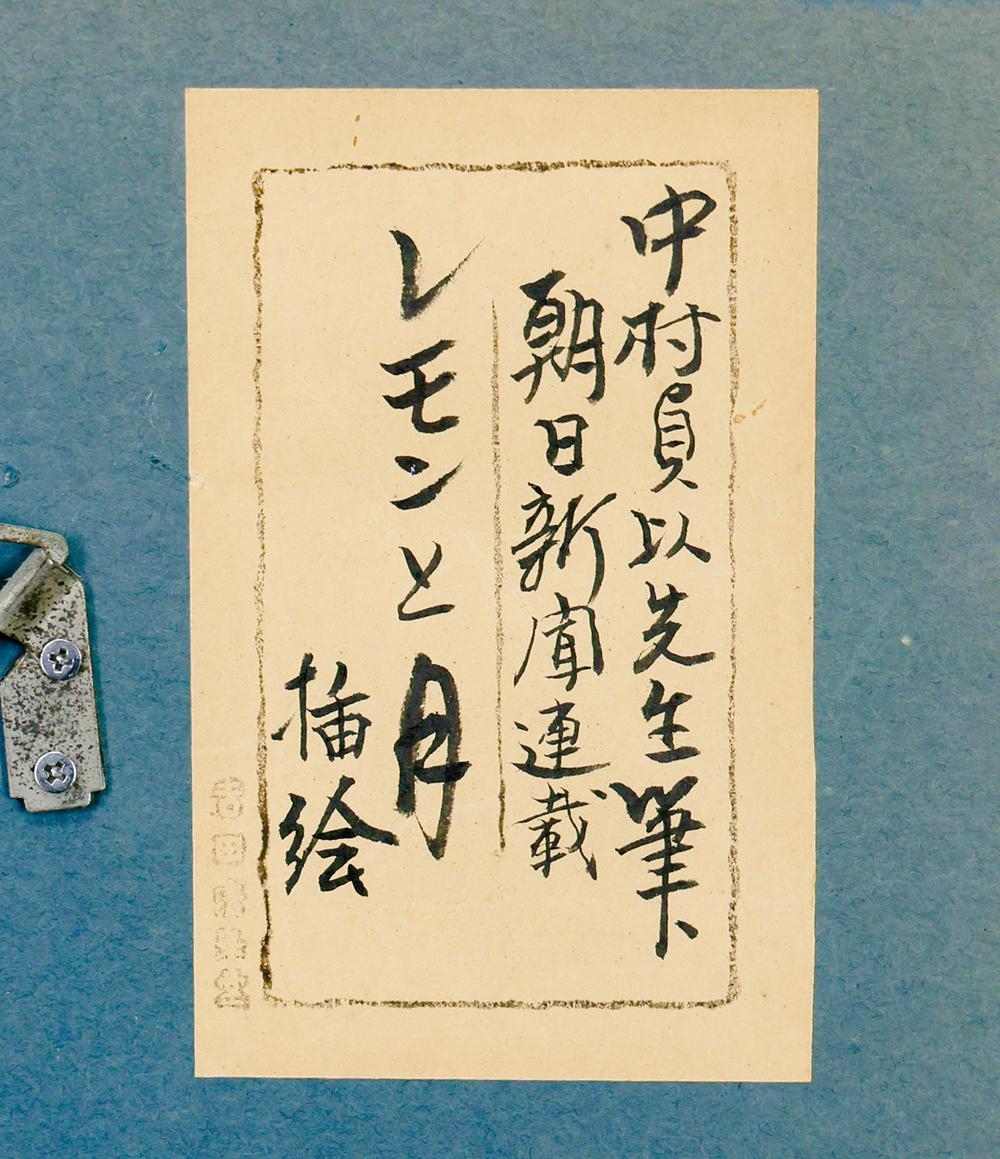 中村貞以先生筆
朝日新聞連載
レモンと月
插絵